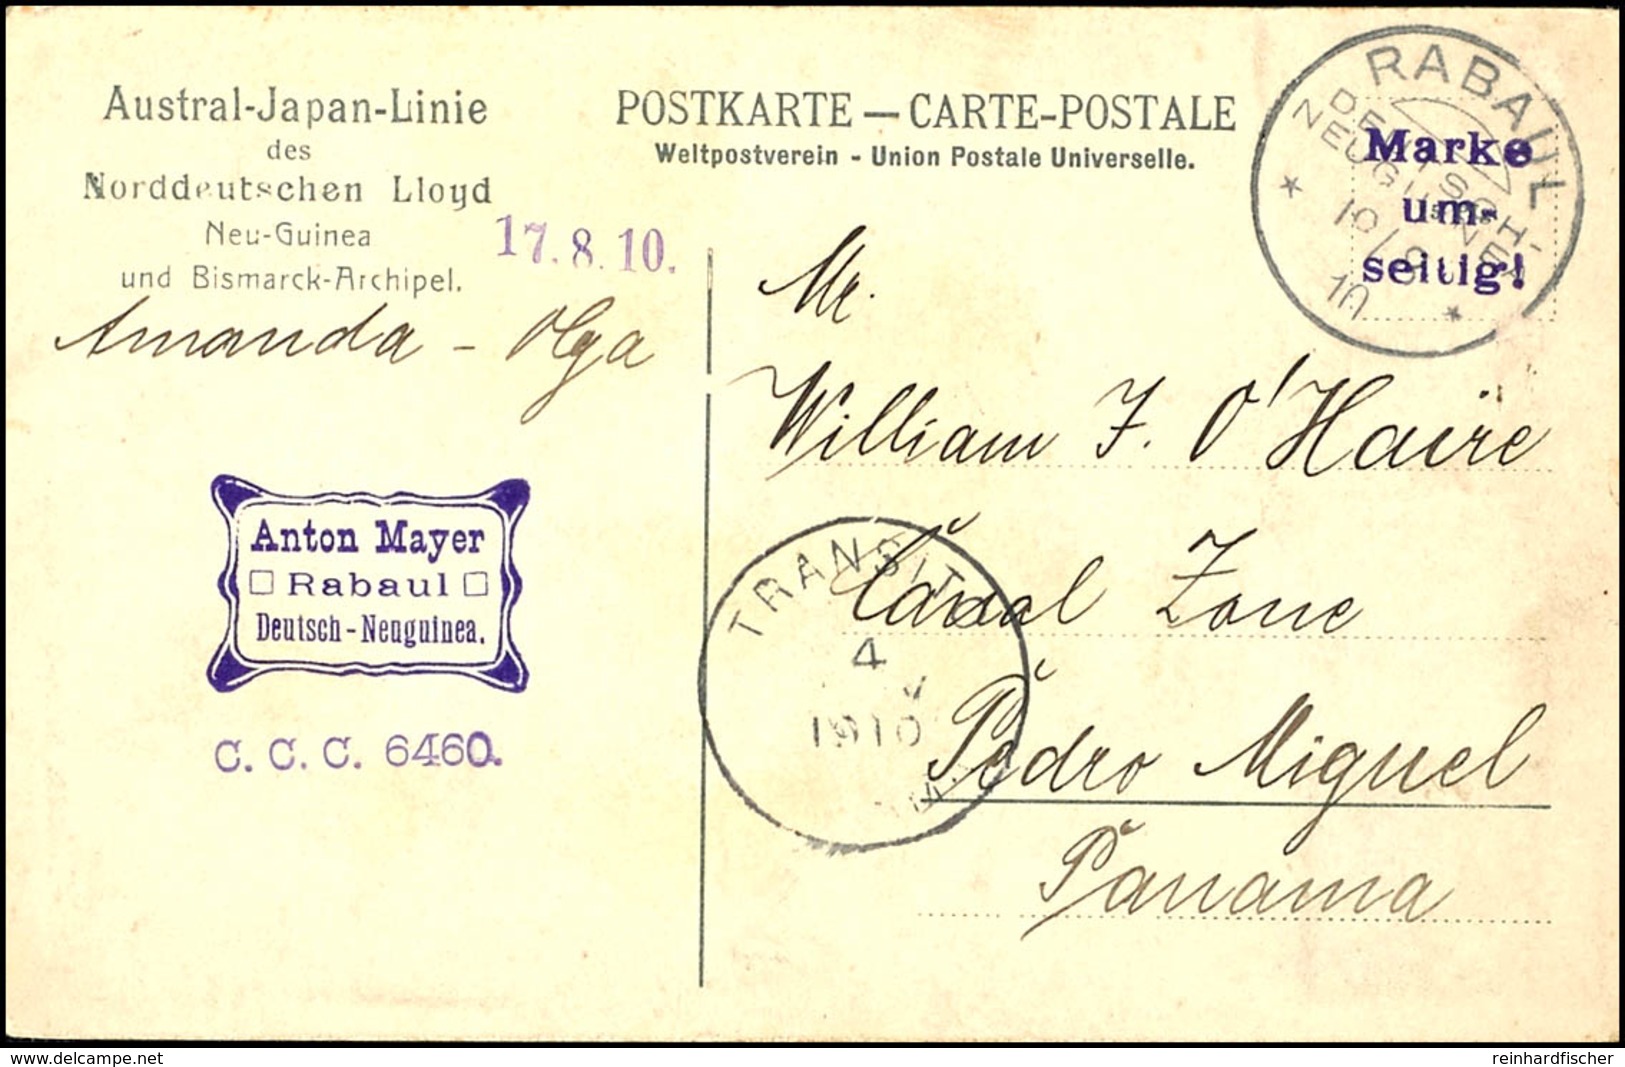 Austral-Japan-Linie
des
Norddeutschen Lloyd
Neu-Guinea
und Bismarck-Archipel.
17.8.10.
Amanda - Olga
POSTKARTE — CARTE-POSTALE
Weltpostverein - Union Postale Universelle.
RABAUL
DEUTSCH-
NEUGUINEA
10
Marke
um-
seitig!
Mr.
William F. O'Haire
Canal Zone
Pedro Miguel
Panama
TRANSIT
4
1910
Anton Mayer
Rabaul
Deutsch-Neuguinea.
C. C. C. 6460.
www.delcampe.net
reinhardfischer